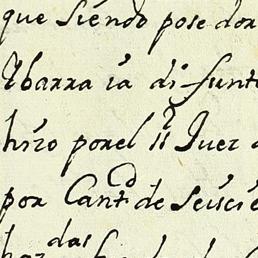 que siendo posedor
Ybarra ia difunto
hizo por el Juez
por Cantd de seiscie